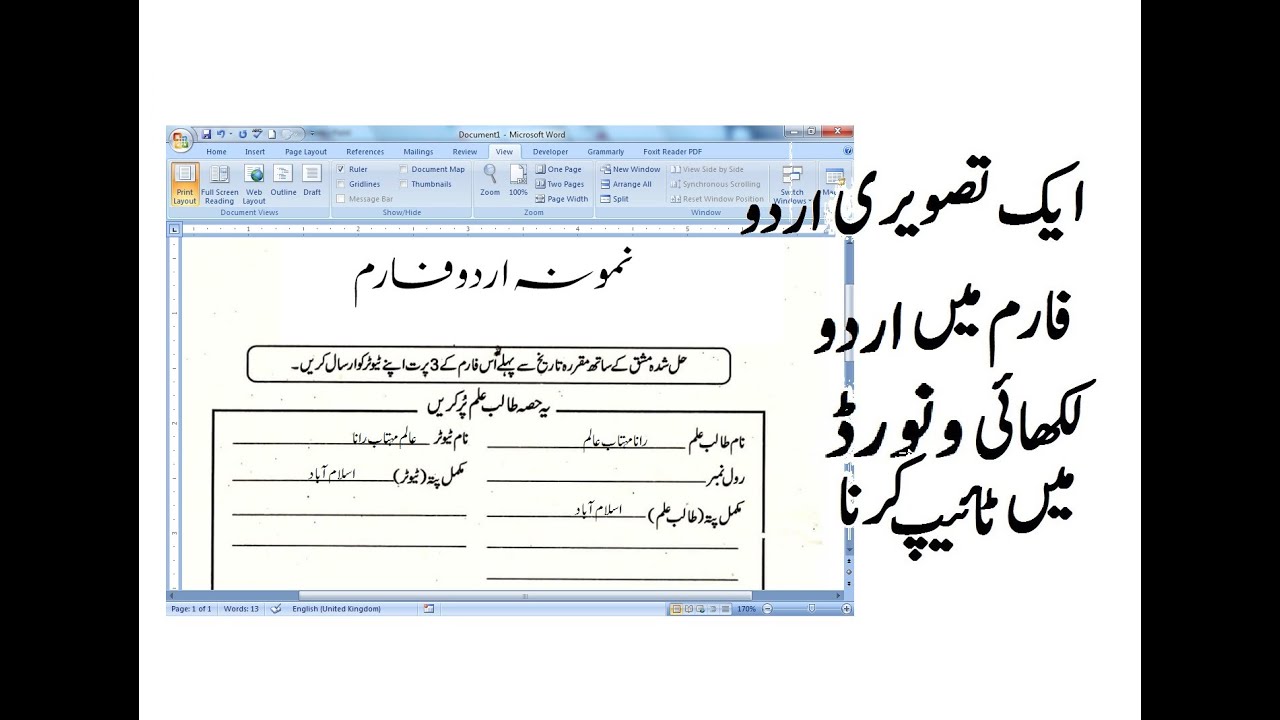 Document1 - Microsoft Word
Home Insert Page Layout References Mailings Review View Developer Grammarly Foxit Reader PDF
Print Layout
Full Screen Reading
Web Layout
Outline
Draft
Document Views
Ruler
Gridlines
Message Bar
Document Map
Thumbnails
Show/Hide
Zoom
100%
One Page
Two Pages
Page Width
Zoom
New Window
Arrange All
Split
View Side by Side
Synchronous Scrolling
Reset Window Position
Switch Windows
Window
ایک تصویری اردو
فارم میں اردو
لکھائی ونورڈ
میں ٹائیپ کرنا
نمونہ اردو فارم
حل شدہ مشق کے ساتھ مقررہ تاریخ سے پہلے اُس فارم کے 3 پرت اپنے ٹیوٹر کو ارسال کریں۔
یہ حصہ طالب علم پُر کریں
نام طالب علم رانا مہتاب عالم نام ٹیوٹر عالم مہتاب رانا
رول نمبر مکمل پتہ (ٹیوٹر) اسلام آباد
مکمل پتہ (طالب علم) اسلام آباد
Page: 1 of 1 Words: 13 English (United Kingdom) 170%